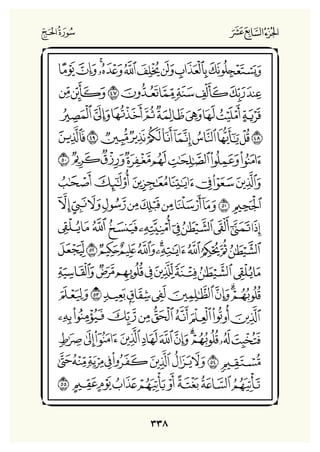 الجزء السابع عشر
سورة الحج
وَيَسْتَعْجِلُونَكَ بِالْعَذَابِ وَلَن يُخْلِفَ اللَّهُ وَعْدَهُ ۚ وَإِنَّ يَوْمًا
عِندَ رَبِّكَ كَأَلْفِ سَنَةٍ مِّمَّا تَعُدُّونَ ٤٧ وَكَأَيِّن مِّن
قَرْيَةٍ أَمْلَيْتُ لَهَا وَهِيَ ظَالِمَةٌ ثُمَّ أَخَذْتُهَا وَإِلَيَّ الْمَصِيرُ
٤٨ قُلْ يَا أَيُّهَا النَّاسُ إِنَّمَا أَنَا لَكُمْ نَذِيرٌ مُّبِينٌ ٤٩ فَالَّذِينَ
آمَنُوا وَعَمِلُوا الصَّالِحَاتِ لَهُم مَّغْفِرَةٌ وَرِزْقٌ كَرِيمٌ ٥٠
وَالَّذِينَ سَعَوْا فِي آيَاتِنَا مُعَاجِزِينَ أُولَٰئِكَ أَصْحَابُ
الْجَحِيمِ ٥١ وَمَا أَرْسَلْنَا مِن قَبْلِكَ مِن رَّسُولٍ وَلَا نَبِيٍّ إِلَّا
إِذَا تَمَنَّىٰ أَلْقَى الشَّيْطَانُ فِي أُمْنِيَّتِهِ فَيَنسَخُ اللَّهُ مَا يُلْقِي
الشَّيْطَانُ ثُمَّ يُحْكِمُ اللَّهُ آيَاتِهِ ۗ وَاللَّهُ عَلِيمٌ حَكِيمٌ ٥٢ لِّيَجْعَلَ
مَا يُلْقِي الشَّيْطَانُ فِتْنَةً لِّلَّذِينَ فِي قُلُوبِهِم مَّرَضٌ وَالْقَاسِيَةِ
قُلُوبُهُمْ ۗ وَإِنَّ الظَّالِمِينَ لَفِي شِقَاقٍ بَعِيدٍ ٥٣ وَلِيَعْلَمَ
الَّذِينَ أُوتُوا الْعِلْمَ أَنَّهُ الْحَقُّ مِن رَّبِّكَ فَيُؤْمِنُوا بِهِ
فَتُخْبِتَ لَهُ قُلُوبُهُمْ ۗ وَإِنَّ اللَّهَ لَهَادِ الَّذِينَ آمَنُوا إِلَىٰ صِرَاطٍ
مُّسْتَقِيمٍ ٥٤ وَلَا يَزَالُ الَّذِينَ كَفَرُوا فِي مِرْيَةٍ مِّنْهُ حَتَّىٰ
تَأْتِيَهُمُ السَّاعَةُ بَغْتَةً أَوْ يَأْتِيَهُمْ عَذَابُ يَوْمٍ عَقِيمٍ ٥٥
٣٣٨